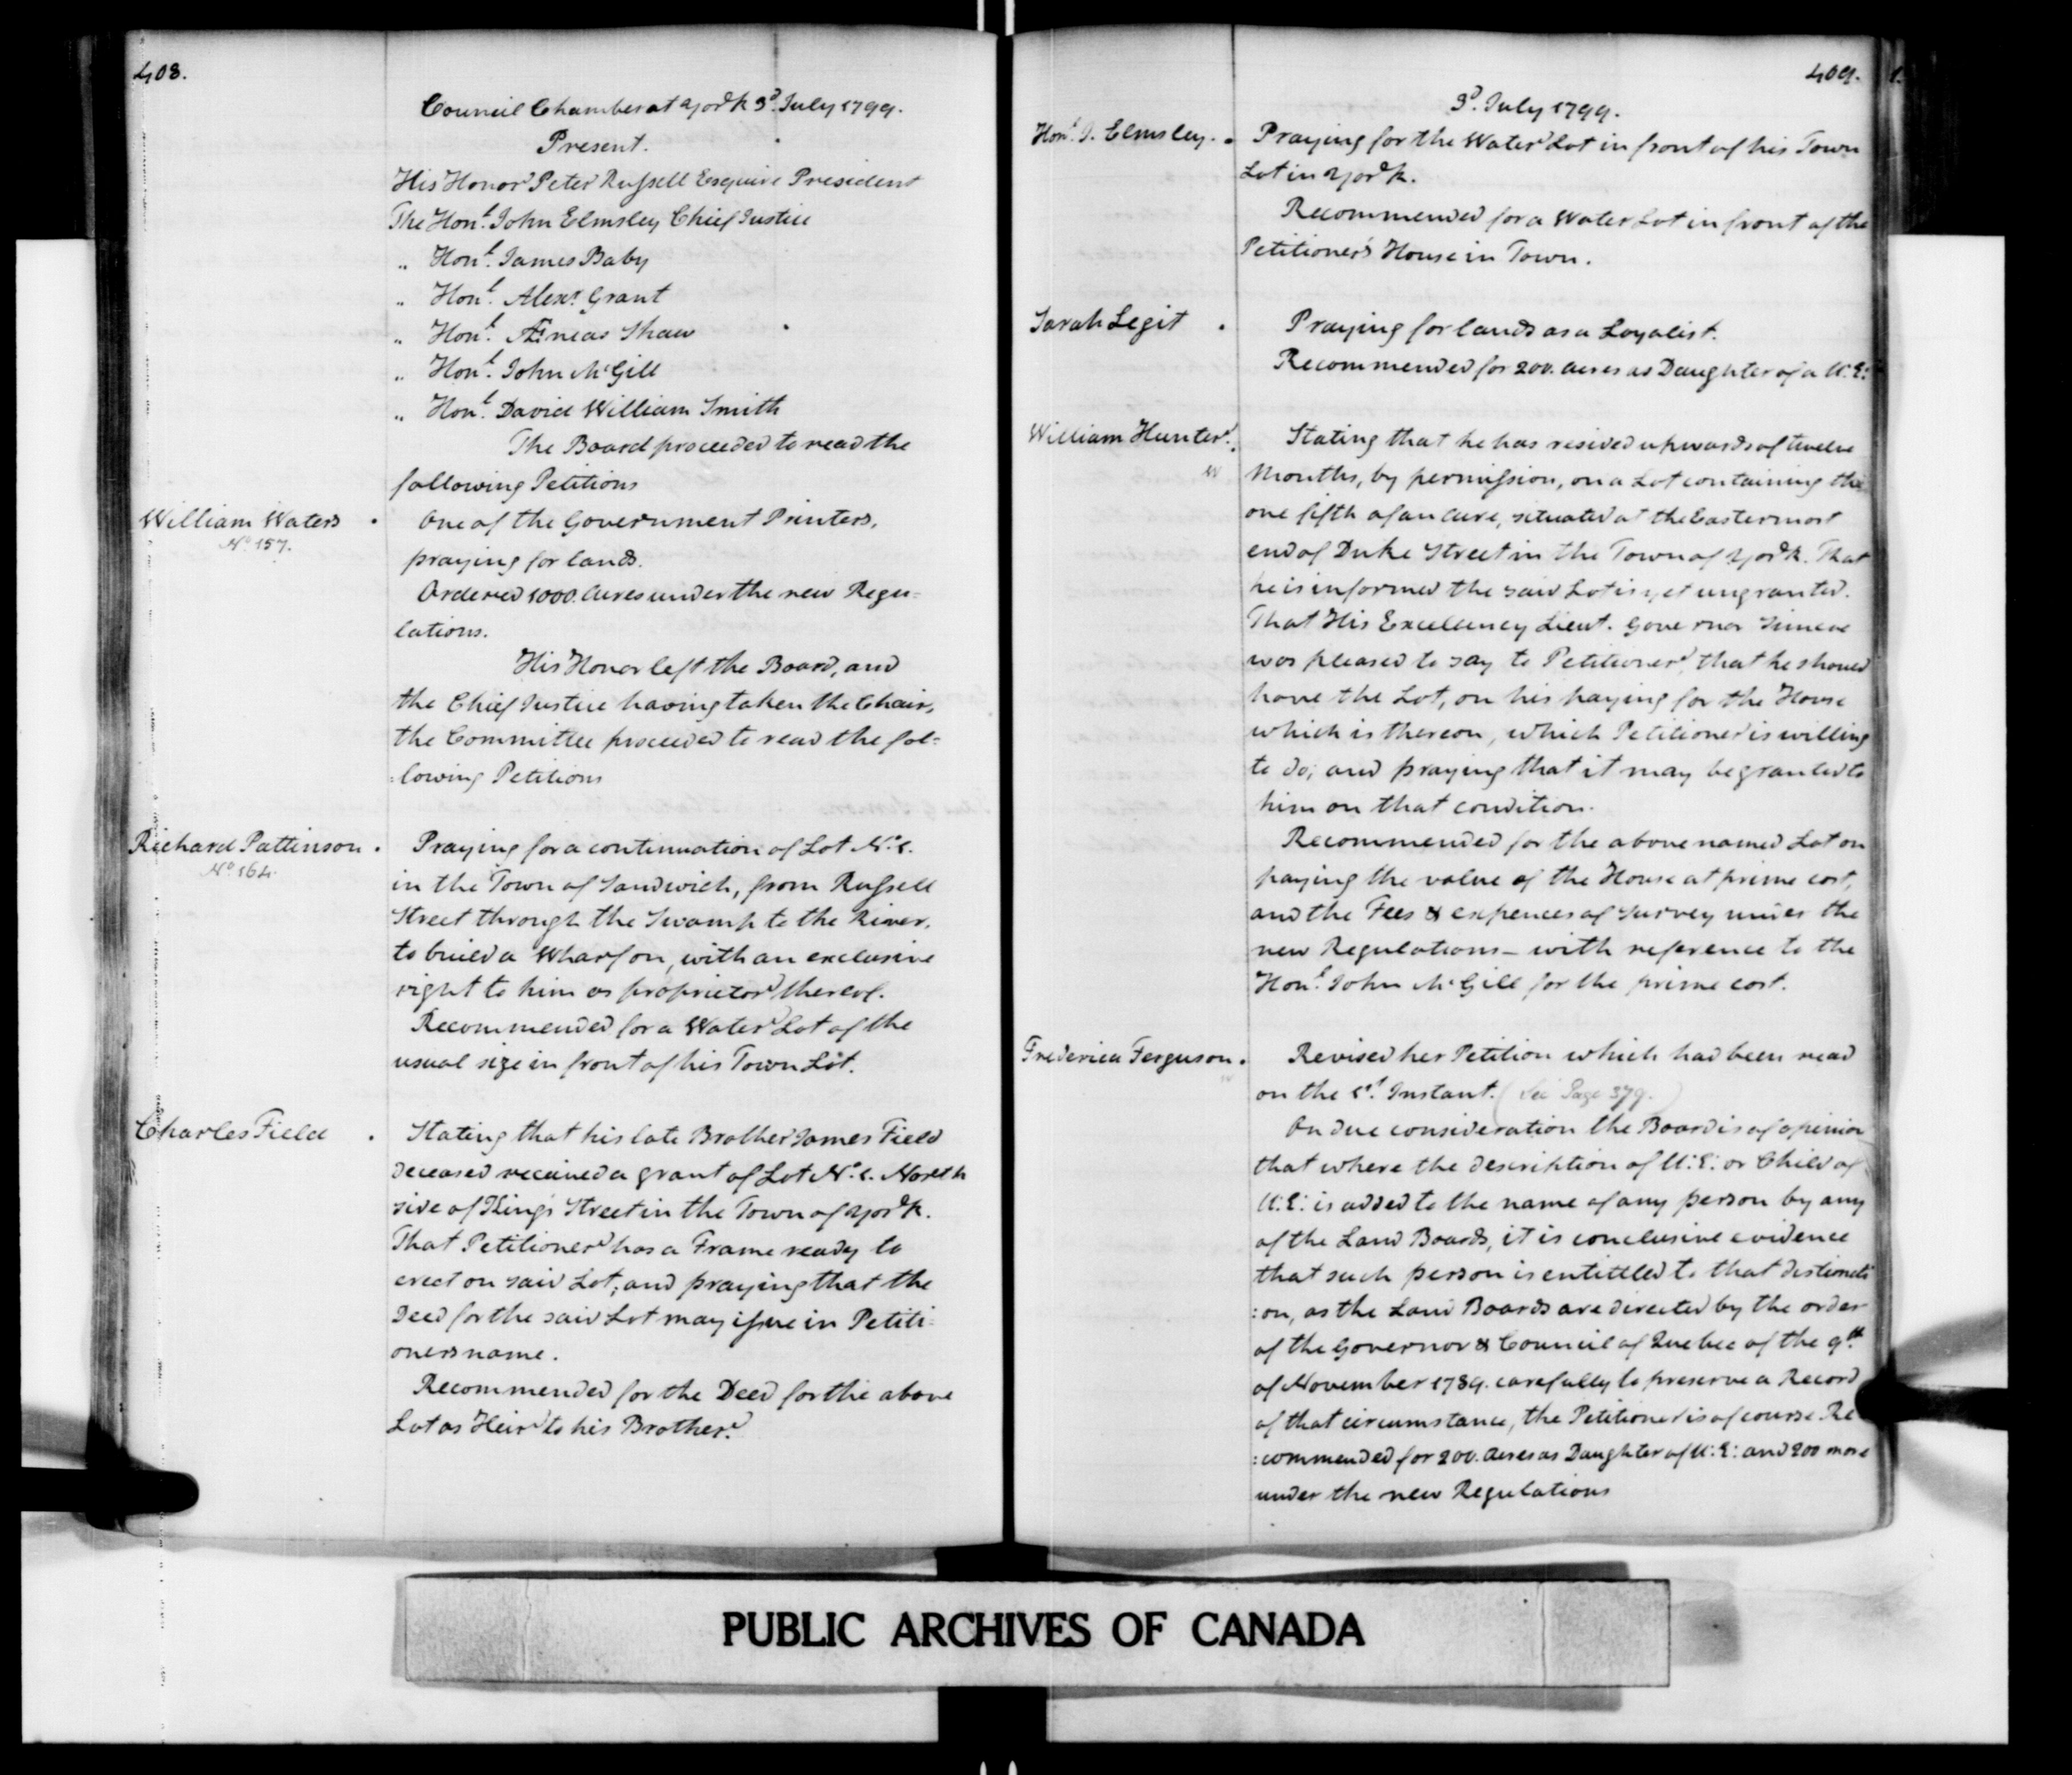 408.
Council Chamber at York 3d. July 1799.
Present.
His Honor Peter Russell Esquire President
The Honl. John Elmsley Chief Justice
„ Honl. James Baby
„ Honl. Alexr. Grant
„ Honl. Æneas Shaw
„ Honl. John McGill
„ Honl. David William Smith
The Board proceeded to read the
following Petitions
William Waters
No. 157.
One of the Government Printers,
praying for lands.
Ordered 1000. Acres under the new Regu=
lations.
His Honor left the Board, and
the Chief Justice having taken the Chair,
the Committee proceeded to read the fol=
:lowing Petitions
Richard Pattinson.
No. 164.
Praying for a continuation of Lot No. 1.
in the Town of Sandwich, from Russell
Street through the Swamp to the River,
to build a Wharf on, with an exclusive
right to him as proprietor thereof.
Recommended for a Water Lot of the
usual size in front of his Town Lot.
Charles Field
Stating that his late Brother James Field
deceased received a grant of Lot No. 1. North
side of King's Street in the Town of York.
That Petitioner has a Frame ready to
erect on said Lot; and praying that the
Deed for the said Lot may issue in Petiti:
oners name.
Recommended for the Deed for the above
Lot as Heir to his Brother.
409.
3d. July 1799.
Honl. J. Elmsley.
Praying for the Water Lot in front of his Town
Lot in York.
Recommended for a Water Lot in front of the
Petitioner's House in Town.
Sarah Legit
Praying for lands as a Loyalist.
Recommended for 200. acres as Daughter of a U:E:
William Hunter.
Stating that he has resided upwards of twelve
Months, by permission, on a Lot containing the
one fifth of an Acre, situated at the Eastermost
end of Duke Street in the Town of York. That
he is informed the said Lot is yet ungranted.
That His Excellency Lieut. Governor Simcoe
was pleased to say to Petitioner, that he should
have the Lot, on his paying for the House
which is thereon, which Petitioner is willing
to do; and praying that it may be granted to
him on that condition.
Recommended for the above named Lot on
paying the value of the House at prime cost,
and the Fees & expences of Survey under the
new Regulations – with reference to the
Honl. John McGill for the prime cost.
Frederica Ferguson.
Revised her Petition which had been read
on the 1st. Instant. (See Page 379.)
On due consideration the Board is of opinion
that where the description of U:E: or Child of
U:E: is added to the name of any person by any
of the Land Boards, it is conclusive evidence
that such person is entittled to that distincti
:on, as the Land Boards are directed by the order
of the Governor & Council of Quebec of the 9th.
of November 1789. carefully to preserve a Record
of that circumstance, the Petitioner is of course Re
:commended for 200. Acres as Daughter of U:E: and 200 more
under the new Regulations
PUBLIC ARCHIVES OF CANADA